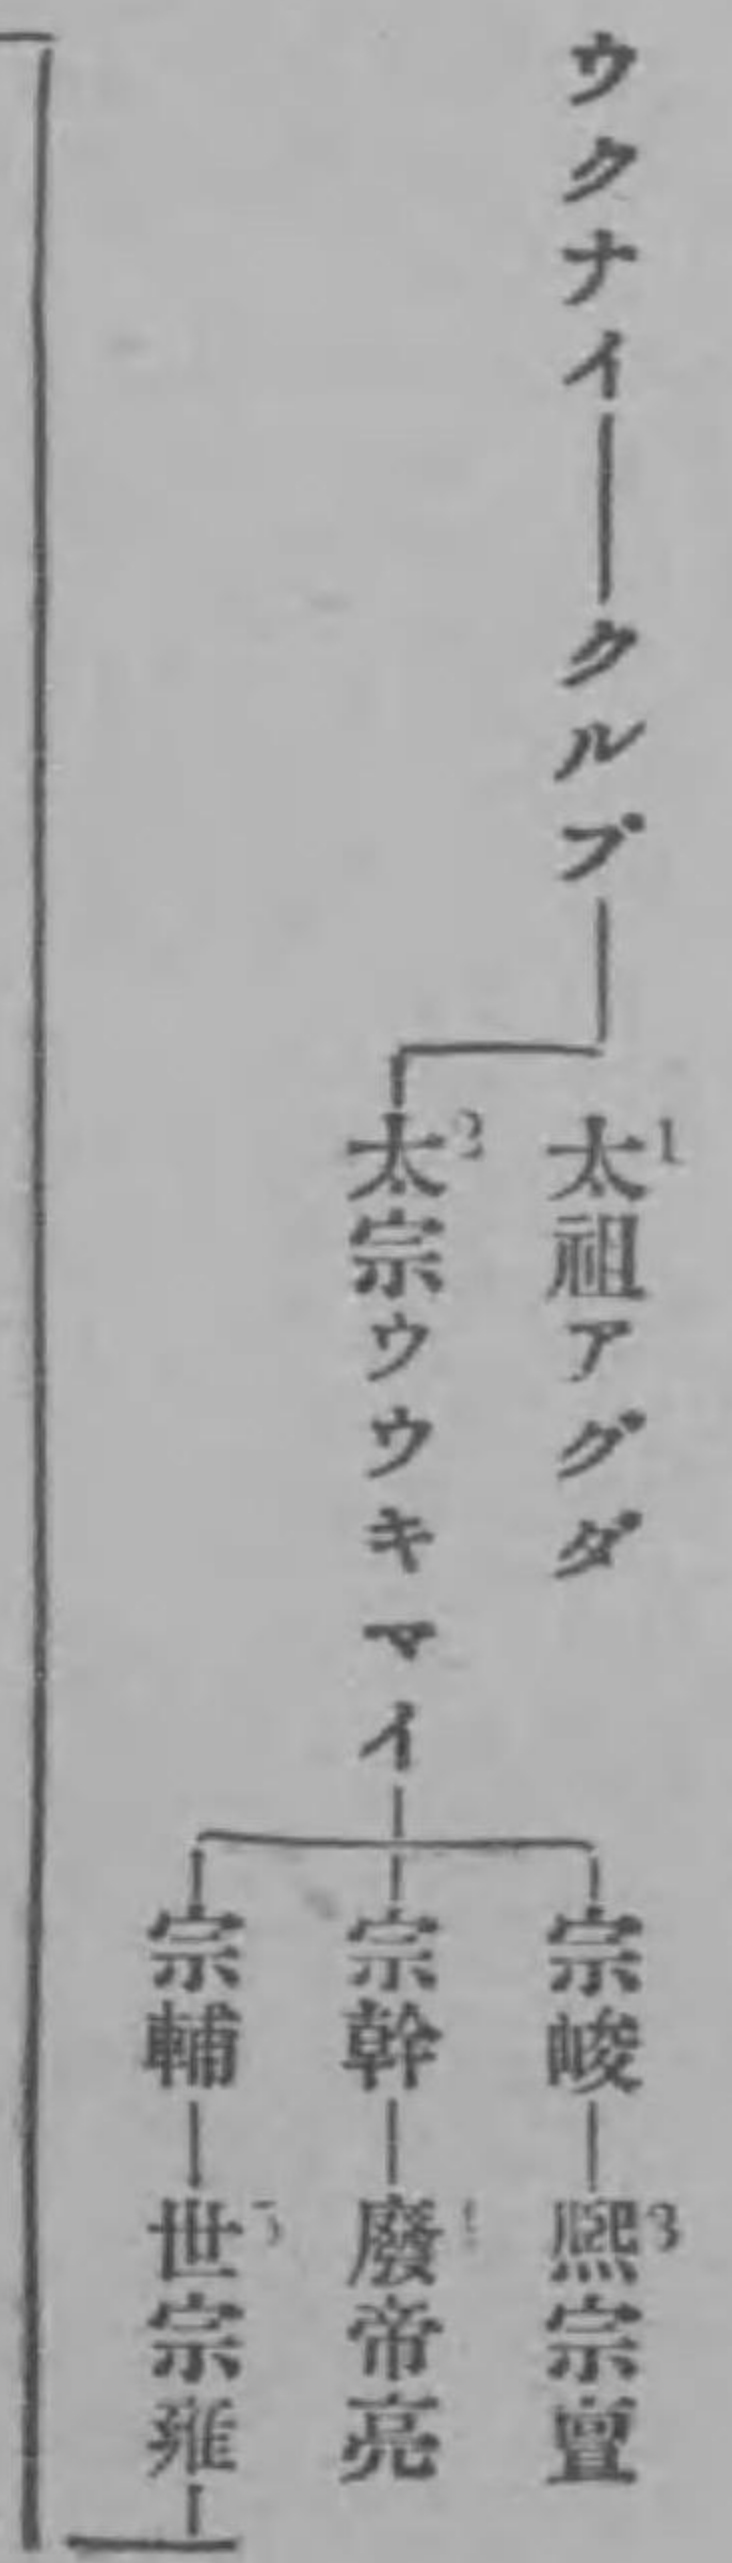 ウクナイ
クルブ
1太祖アグダ
2太宗ウウキマイ
宗峻
3熙宗亶
宗幹
廢帝亮
宗輔
5世宗雍